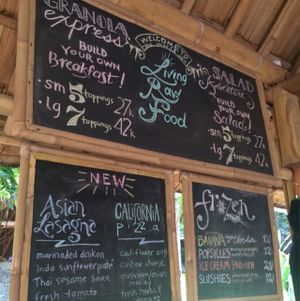 GRANOLA
express
BUILD
YOUR OWN
Breakfast!
sm 5 toppings 27k
lg 7 toppings 42k
WELCOME TO
Living
Raw
Food
SALAD
Adventure
BUILD
YOUR OWN
Salad!
sm 5 toppings 27k
lg 7 toppings 42k
NEW
Asian
Lasagne
marinaded daikon
indo sunflower pate
Thai sesame sauce
fresh tomato
CALIFORNIA
pizza
cauliflower
cashew cheese
mushrooms
fresh herbs &
frozen
BANANA
POPSICLES
ICE CREAM SANDWICH
SLUSHIES